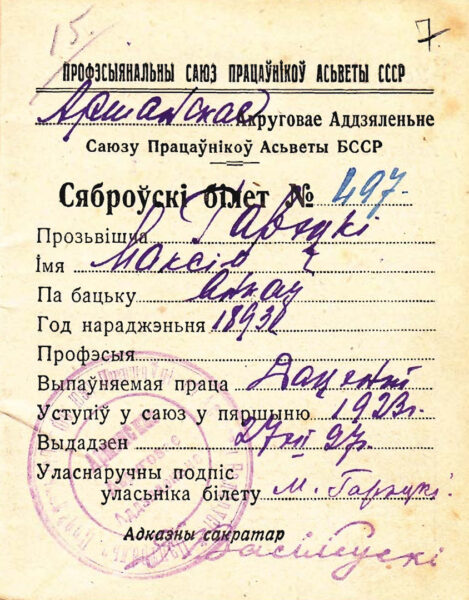 15.
7.
ПРОФЭСЫЯНАЛЬНЫ САЮЗ ПРАЦАЎНІКОЎ АСЬВЕТЫ СССР
Аршанскае Акруговае Аддзяленьне
Саюзу Працаўнікоў Асьветы БССР
Сяброўскі білет № 497
Прозьвішча Гарэцкі
Імя Максім
Па бацьку
Год нараджэньня 1893
Профэсыя
Выпаўняемая праца Дацент
Уступіў у саюз у пяршыню 1923 г.
Выдадзен 27 VII 27 г.
Уласнаручны подпіс
уласьніка білету М. Гарэцкі
Адказны сакратар